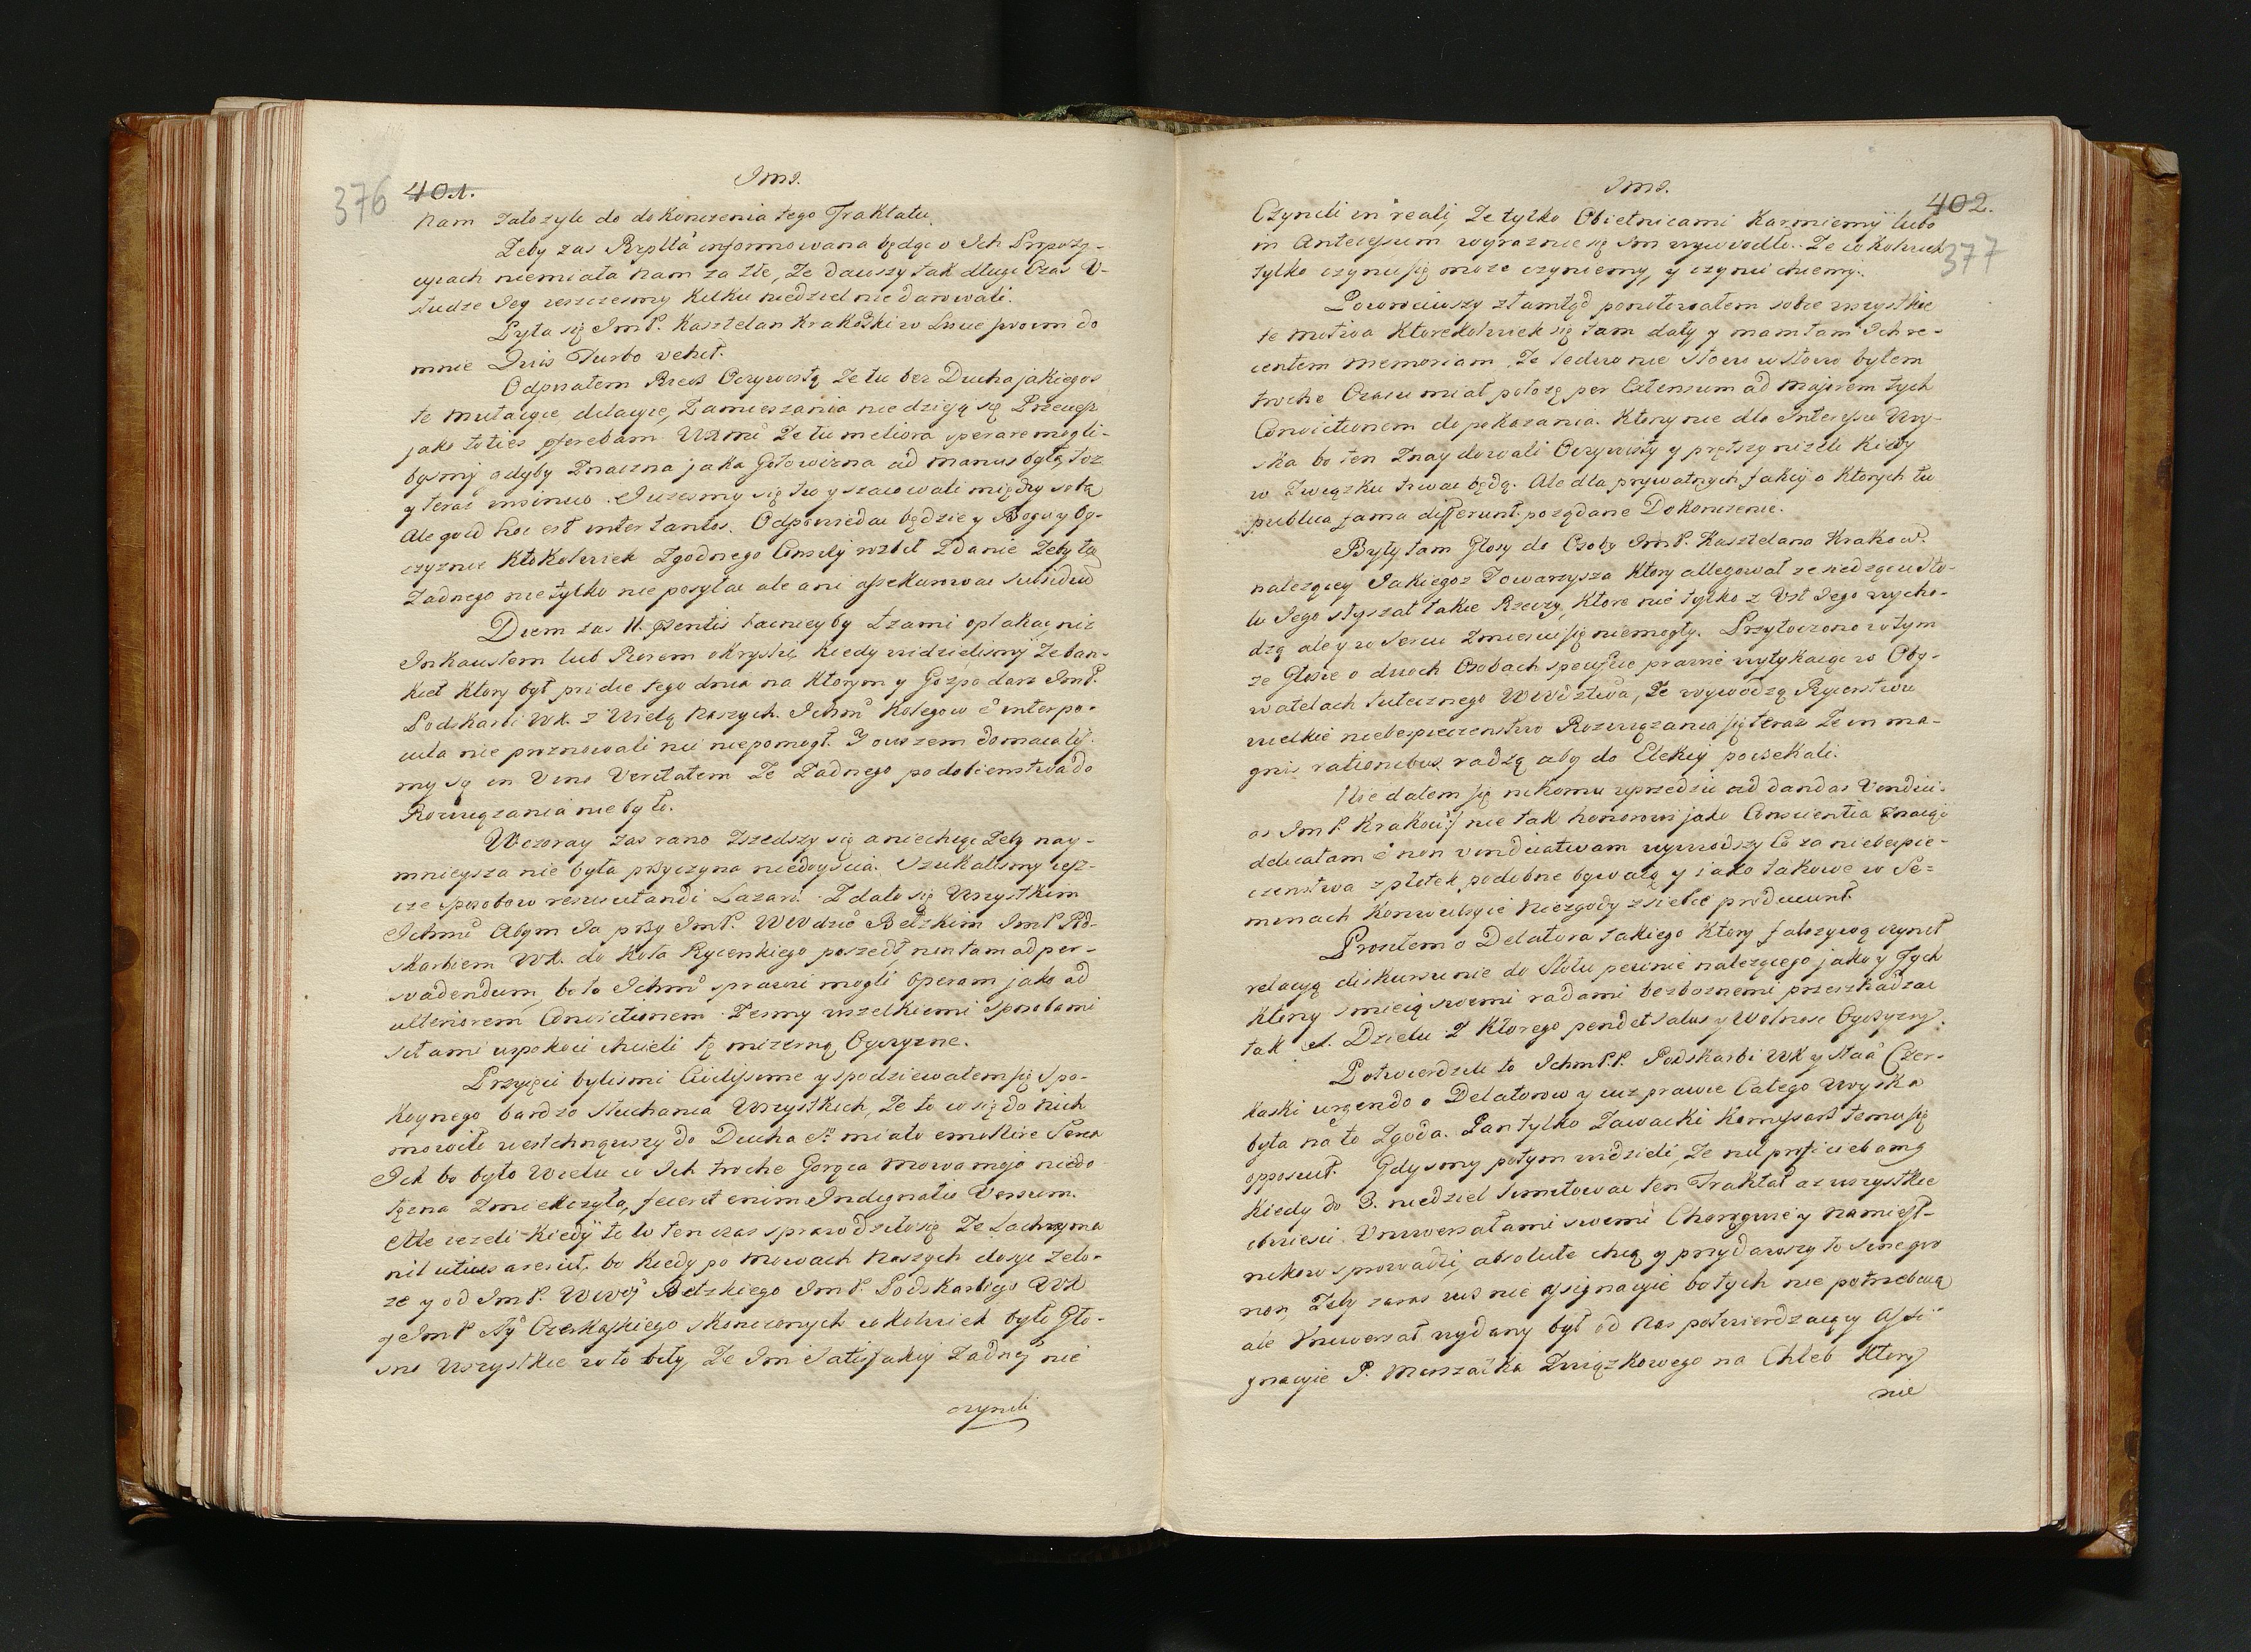 Jms.
376 401.
Nam założyli do dokonczenia tego Traktatu.
Żeby zas Rzpltá informowana będąc o Ich Propozy-
cyiach niemiała nam za złe, Ze dawszy tak długi Czas U-
łudze Jey ieszczesmy kilku niedziel nie darowali.
Pyta się JmP. Kasztelan Krakowski w Liscie swoim do
mnie Quis Turbo vehit.
Odpisałem Rzecz Oczywistą Ze tu bez Ducha jakiegos
te mutacye dilacye, Zamieszania nie dzieją się Przeciesz
jako toties scribebam WXMci Ze tu meliora sperare mogli-
bysmy gdyby Znaczna jaka Gotowizna ad manus była, toz
y teraz insinuo. Juzesmy się tu y szacowali między sobą
Ale quid hoc est inter tantos. Odpowiedac będzie y Bogu y Oy-
czyznie Ktokolwiek Zgodnego Consilij rozbił Zdanie Zeby tą
Zadnego nie tylko nie posyłac ale ani assekurowac subsidiu
Diem zas 11. praesentis łacniey by Łzami opłakac, niz
Inkaustem lub Piorem okryslic, kiedy widzielismy Ze ban-
kiet Ktory był pridie tego dnia na Ktorym y Gospodarz JmP.
Podskarbi WK. z Wielą Naszych Ichmć Kolegow é inter po-
cula nie proznowali nic niepomogł. Y owszem domacalis-
my są in Vino Veritatem Ze Zadnego podobienstwa do
Rozwiązania nie było.
Wczoray zas rano Zszedszy się a niechcąc Zeby nay-
mnieysza nie była przyczyna niedoyscia. Szukalismy iesz-
cze sposobow resuscitandi Lazari. Zdało się Wszystkim
Ichmć Abym Ja przy JmP. WWdzie Bełzkim JmP Pod-
skarbiem WK. do Koła Rycerskiego poszedł non tam ad per-
svadendum, bo to Ichmć sprawic mogli operam jako ad
ulteriorem Convictionem Zesmy wszelkiemi sposobami
siłami uspokoic chcieli tę mizerną Oyczyzne.
Przyięci bylismi Civilissime y spodziewałem się spo-
koynego bardzo słuchania Wszystkich, Ze to co się do nich
mowiło westchnąwszy do Ducha S. miało emollire Serca
Ich bo było Wielu co Ich troche Gorąca mowa moja niedo-
łęzna Zmiekczyła, fecerit enim Indignatio Versum.
Ale iezeli kiedy to w ten czas sprawdziło się Ze Lachryma
nil citius arescit, bo kiedy po mowach Naszych dosyc zelo-
ze y od JmP. Wwdy Bełzkiego JmP. Podskarbiego WK
y JmP Sty Czerkaskiego skonczonych cokolwiek było Gło-
sno Wszystkie w to biły Ze Im Satisfakcij Zadney nie
czynili
Jms.
402.
377
Czynili in reali, Ze tylko Obietnicami Karmiemy lubo
in Antecessum wyraznie się Im wywodziło. Ze cokolwiek
tylko czynic się moze czyniemy, y czynic chcemy.
Powrociwszy ztamtąd ponotowałem sobie wszystkie
te motiva Ktorekolwiek się tam dały y mam tam Ich re-
centem memoriam, Ze ledwo nie słowo w słowo byłem
troche Czasu miał połozę per Extensum ad majorem tych
Convictionem do pokazania. Ktory nie dla Interessu Woy-
ska bo ten Znaydowali Oczywisty y prętszy nizeli Kiedy
w Związku trwac będą. Ale dla prywatnych fakcij o Ktorych tu
publica fama differunt poządane Dokonczenie.
Były tam Głosy do Osoby JmP. Kasztelana Krakow.
nalezącey Jakiegos Towarzysza Ktory allegował ze siedząc u Sto-
łu Jego słyszał takie Rzeczy, Ktore nie tylko z Ust Jego wycho-
dzą ale y w sercu zmiescic się niemogły. Przytoczono w tym
ze Głosie o dwoch Osobach specifice prawie wytykaiąc w Oby-
watelach tutecznego WWdztwa, Ze wywodzą Rycerstwu
wielkie niebespieczenstwo Rozwiązania się teraz Ze in ma-
gnis rationibus radzą aby do Elekcij poczekali.
Nie dałem się nikomu uprzedzic ad dandas Vindici-
as JmP. Krakow. nie tak honorowi jako Conscientia znaiąc
delicatam é non vindicativam wywiodszy Co za niebezpie-
czenstwa z plotek podobne bywaią y iako takowe w Se=
menach Konwulsyie Niezgody z siebie producunt.
Prosiłem o Delatora takiego Ktory fałszywą czynił
relacyą diskursu nie do Stołu pewnie nalezącego jako y Tych
Ktorzy smieią swemi radami bezboznemi przeszkadzac
tak S. Dziełu Z Ktorego pendet salus y Wolnosc Oyczyzny.
Potwierdzili to IchmPP. Podskarbi WK y Staá Czer-
kaski urgendo o Delatorow y iuz prawie Całego Woyska
była na to Zgoda. Pan tylko Zawadzki Komissarz temu się
opposuit. Gdysmy potym widzieli, Ze nil proficiebamg
kiedy do 3. niedziel limitowac ten Traktat az wszystkie
obwiesci Uniwersałami swemi Chorągwie y namiest-
nikow sprowadzi, absolute chcą y przydawszy to sine quo
non, Zeby zaras nas nie assignacyie bo tych nie potrzebuią
ale Uniwersał wydany był od Nas potwierdzaiący Assi-
gnacyie P. Marszałka Związkowego na Chleb Ktory
nie